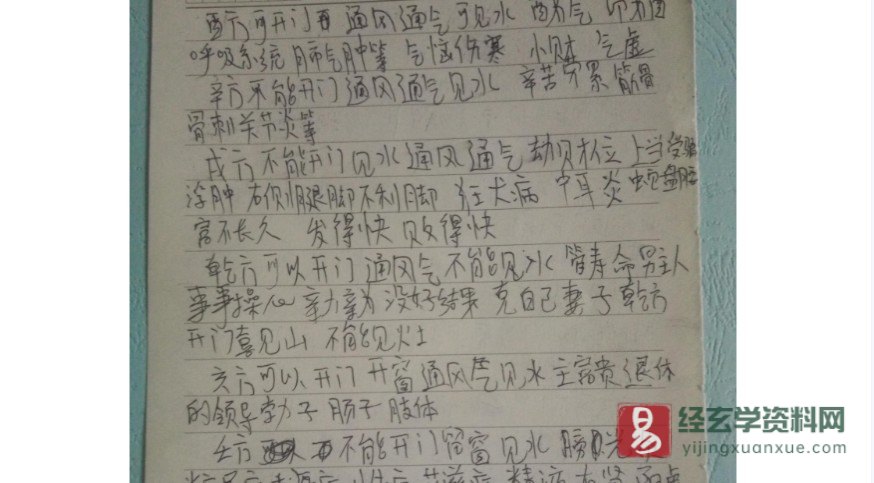 酉方可开门 通风通气可见水
呼吸系统 肺气肿等 气恼伤寒 小财 气虚
辛方不能开门通风通气见水 辛苦劳累 筋骨
骨刺关节炎等
戌方不能开门见水通风通气 劫财位 上当受骗
浮肿 右侧腿脚不利脚 狂犬病 中耳炎
富不长久 发得快败得快
乾方可以开门通风气不能见水 管寿命男主人
事事操心 亲力亲为没好结果 克自己妻子乾方
开门喜见山 不能见灶
亥方可以开门开窗通风气见水主富贵退休
的领导 肠子 肢体
壬方 不能开门留窗见水 膀胱
经玄学资料网
易
yijingxuanxue.com